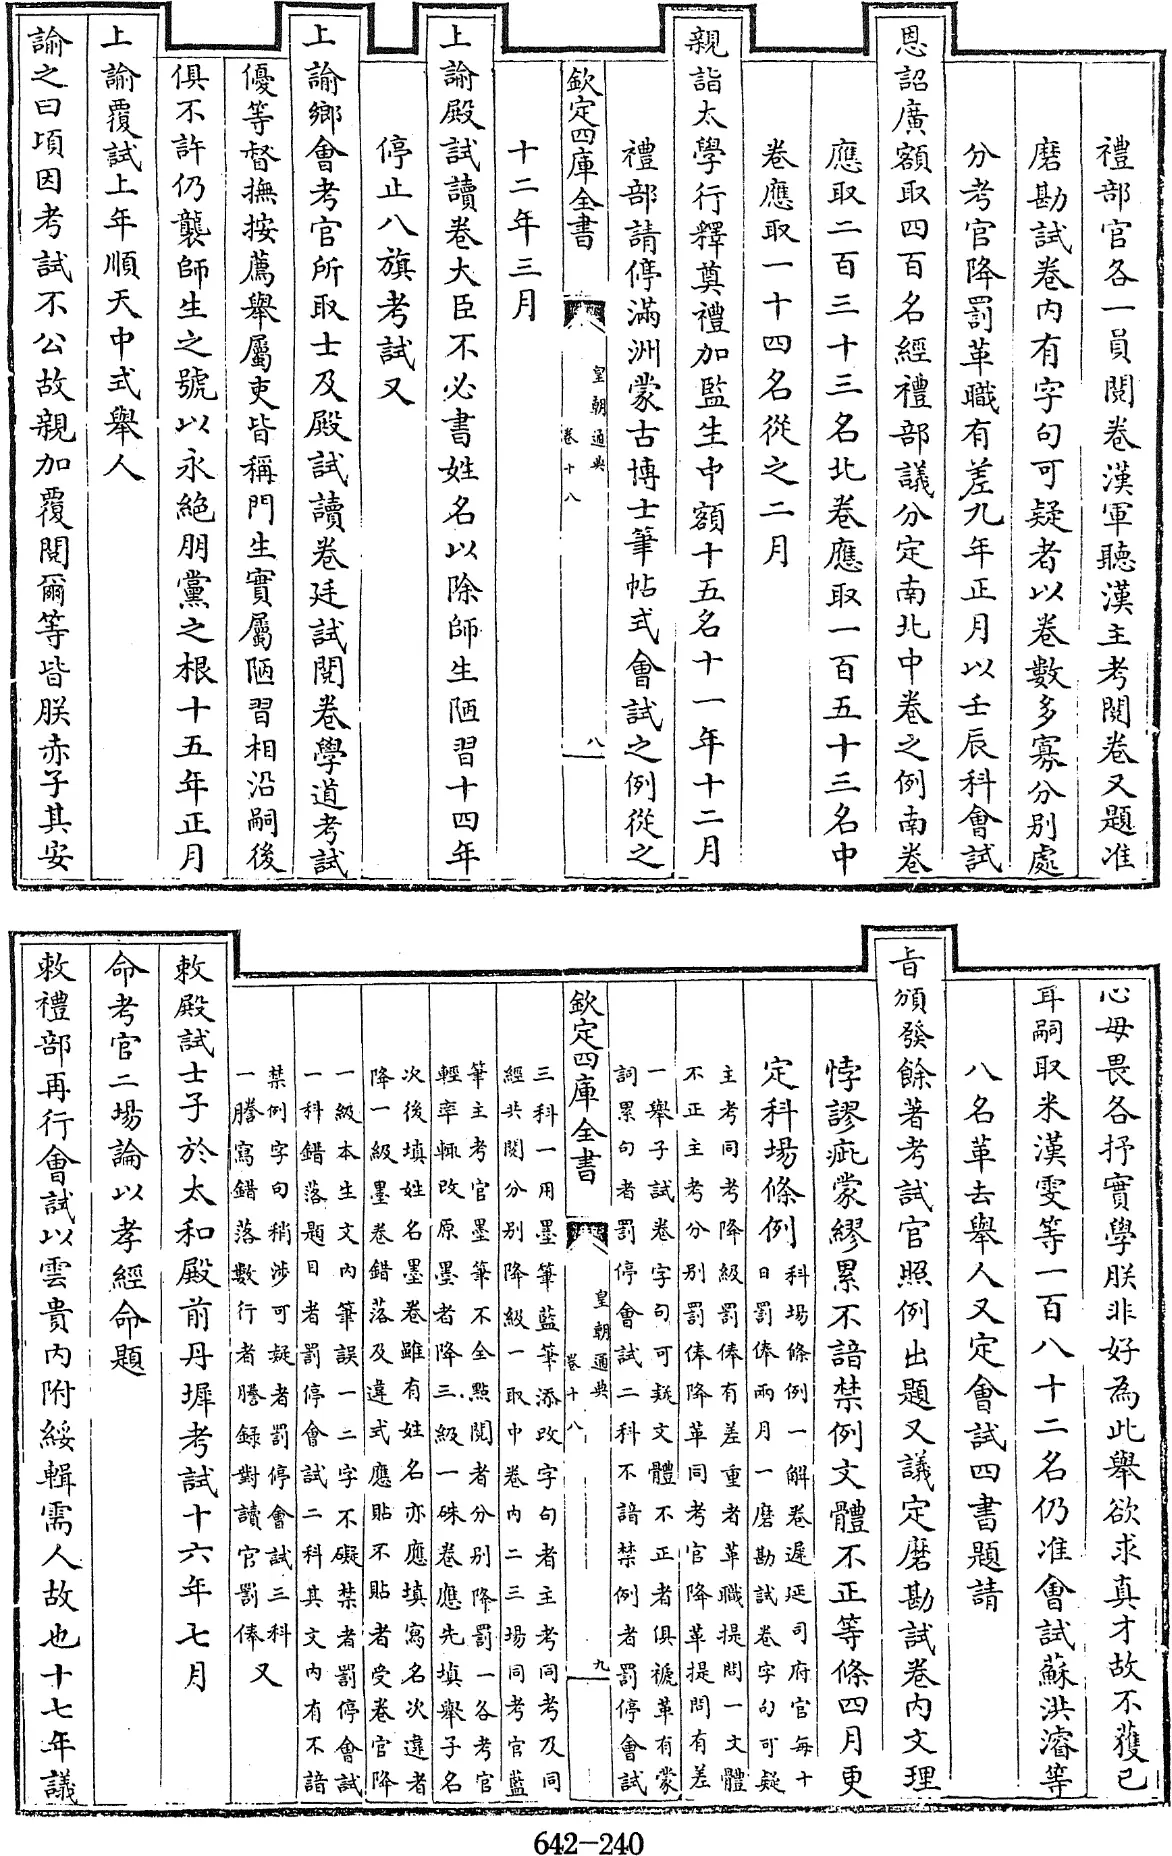 禮部官各一員閱卷漢軍聽漢主考閱卷又題准
磨勘試卷內有字句可疑者以卷數多寡分别處
分考官降罰革職有差九年正月以壬辰科會試
恩詔廣額取四百名經禮部議分定南北中卷之例南卷
應取二百三十三名北卷應取一百五十三名中
卷應取一十四名從之二月
親詣太學行釋奠禮加監生中額十五名十一年十二月
禮部請停滿洲蒙古博士筆帖式會試之例從之
欽定四庫全書 皇朝通典 卷十八 八
十二年三月
上諭殿試讀卷大臣不必書姓名以除師生陋習十四年
停止八旗考試又
上諭鄉會考官所取士及殿試讀卷廷試閱卷學道考試
優等督撫按薦舉屬吏皆稱門生實屬陋習相沿嗣後
俱不許仍襲師生之號以永絕朋黨之根十五年正月
上諭覆試上年順天中式舉人
諭之曰頃因考試不公故親加覆閱爾等皆朕赤子其安
心毋畏各抒實學朕非好為此舉欲求真才故不獲已
耳嗣取米漢雯等一百八十二名仍准會試蘇洪濬等
八名革去舉人又定會試四書題請
旨頒發餘著考試官照例出題又議定磨勘試卷內文理
悖謬疵蒙繆累不諳禁例文體不正等條四月更
定科場條例 科場條例一解卷遲延司府官每十
日罰俸兩月一磨勘試卷字句可疑
主考同考降級罰俸有差重者革職提問一文體
不正主考分别罰俸降革同考官降革提問有差
一舉子試卷字句可疑文體不正者俱褫革有蒙
詞累句者罰停會試二科不諳禁例者罰停會試
欽定四庫全書 皇朝通典 卷十八 九
三科一用墨筆藍筆添改字句者主考同考及同
經共閱分别降級一取中卷內二三場同考官藍
筆主考官墨筆不全點閱者分别降罰一各考官
輕率輒改原墨者降三級一硃卷應先填舉子名
次後填姓名墨卷雖有姓名亦應填寫名次違者
降一級墨卷錯落及違式應貼不貼者受卷官降
一級本生文內筆誤一二字不礙禁者罰停會試
一科錯落題目者罰停會試二科其文內有不諳
禁例字句稍涉可疑者罰停會試三科
一謄寫錯落數行者謄錄對讀官罰俸 又
敕殿試士子於太和殿前丹墀考試十六年七月
命考官二場論以孝經命題
敕禮部再行會試以雲貴內附綏輯需人故也十七年議
642-240